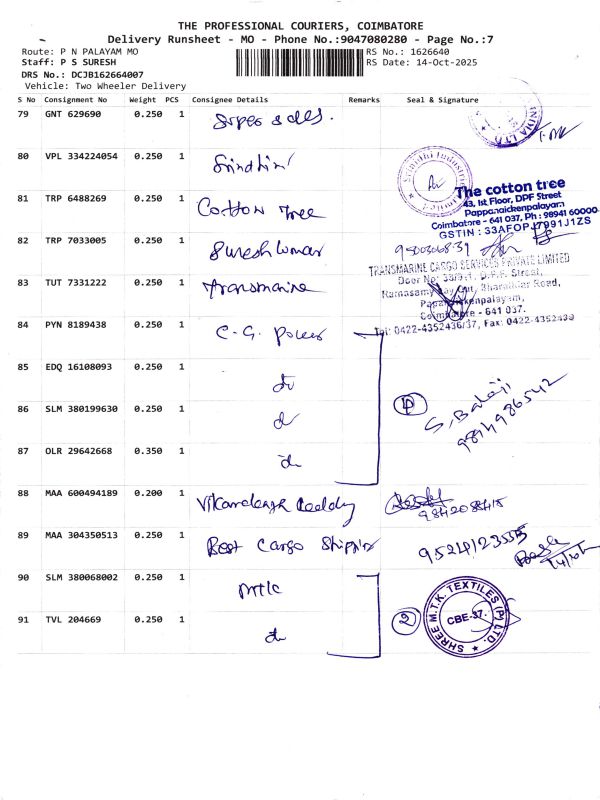 THE PROFESSIONAL COURIERS, COIMBATORE
Delivery Runsheet - MO - Phone No.:9047080280 - Page No.:7
Route: P N PALAYAM MO
RS No.: 1626640
Staff: P S SURESH
RS Date: 14-Oct-2025
DRS No.: DCJB162664007
Vehicle: Two Wheeler Delivery
S No Consignment No Weight PCS Consignee Details Remarks Seal & Signature
79 GNT 629690 0.250 1 Super sales.
INDIA LTD
80 VPL 334224054 0.250 1 Srindhini
Industries Limited
81 TRP 6488269 0.250 1 Cotton Tree
The cotton tree
43, Ist Floor, DPF Street
Pappanaickenpalayam
Coimbatore - 641 037, Ph : 98941 60000
GSTIN : 33AFOPJ7991J1ZS
82 TRP 7033005 0.250 1 Sureshkumar
83 TUT 7331222 0.250 1 Transmarine
TRANSMARINE CARGO SERVICES PRIVATE LIMITED
Door No: D.P.F. Street,
Ramasamy Bharathiar Road,
Coimbatore - 641 037.
Tel: 0422-4352436/37, Fax: 0422-4352439
84 PYN 8189438 0.250 1 C.G. Power
85 EDQ 16108093 0.250 1 do
86 SLM 380199630 0.250 1 do
④ S. Balaji
9894986542
87 OLR 29642668 0.350 1 do
88 MAA 600494189 0.200 1 Reddy
9842088418
89 MAA 304350513 0.250 1 Best Cargo Shipping
9524123535
90 SLM 380068002 0.250 1 mtk
91 TVL 204669 0.250 1 do
②
SHREE M.T.K. TEXTILES (P) LTD.
CBE-37.